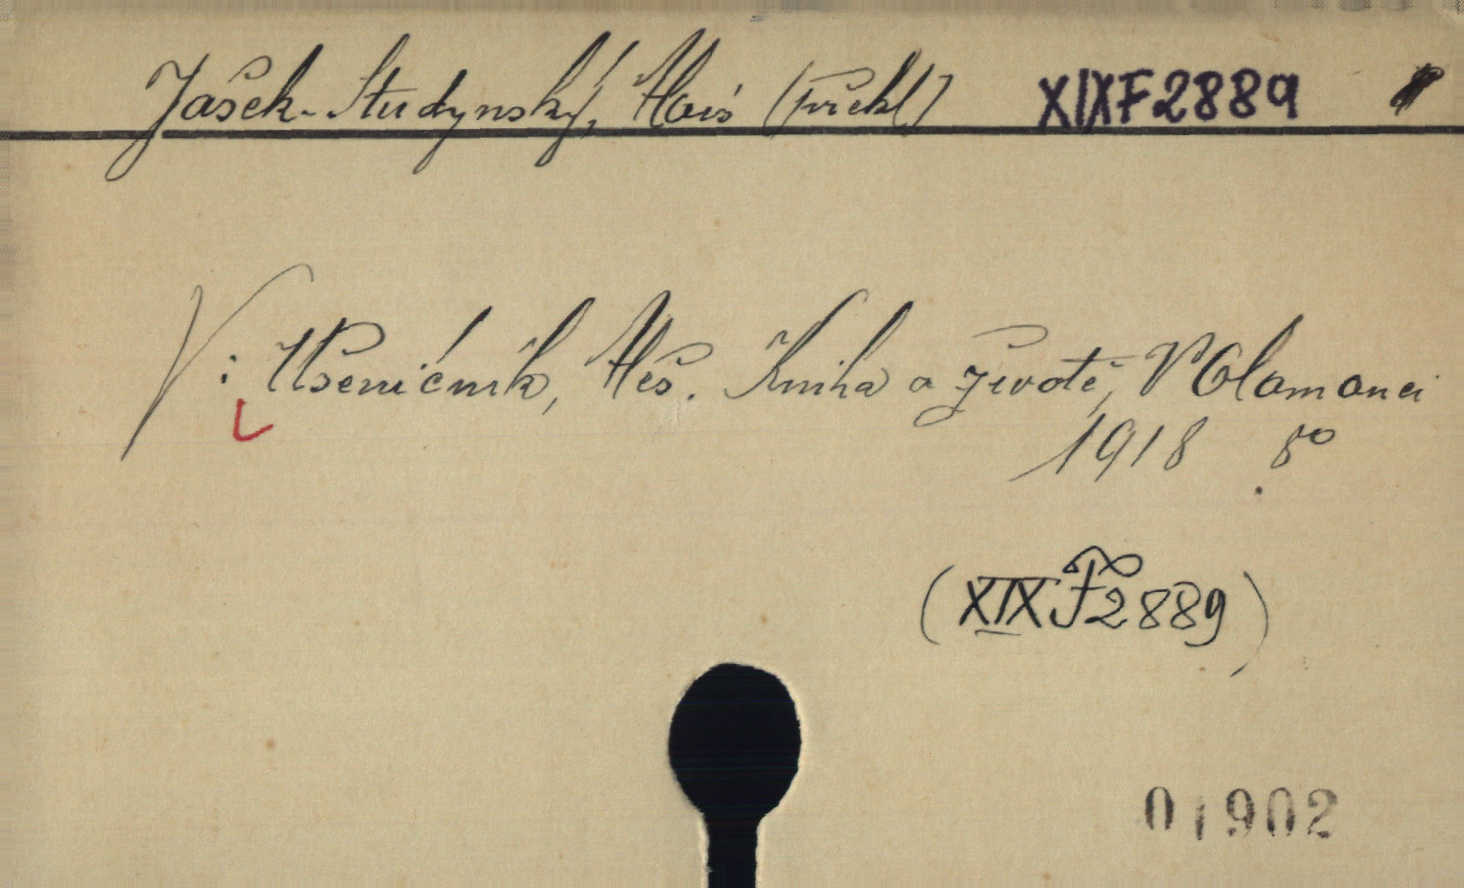 Jašek-Studynský, Alois (Překl) XIXF2889
V: Ušeničnik, Aleš. Kniha o životě, V Olomouci
1918 8°
(XIX F 2889)
01902